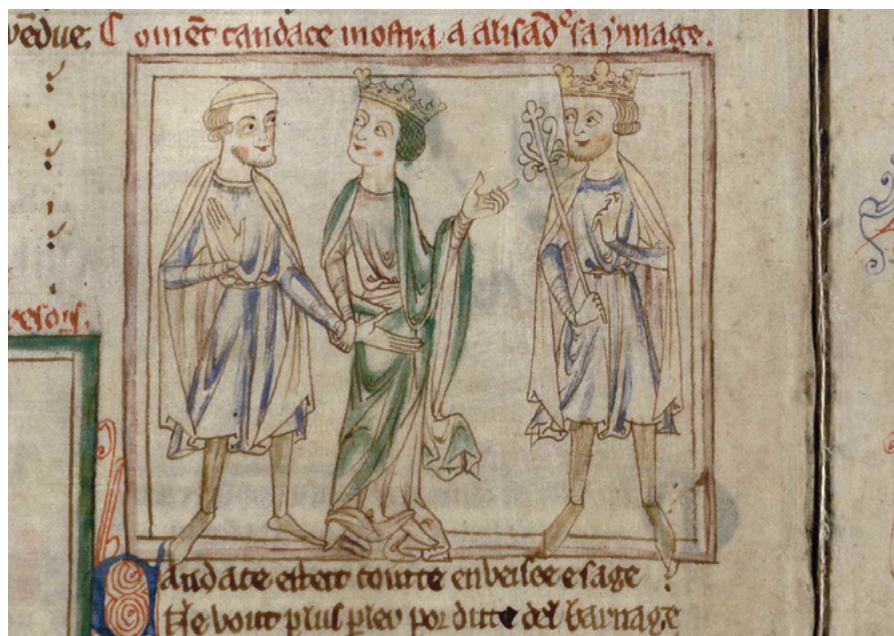 vēdue. Coment candace mostra a alisādᵉ sa ymage.
resors.
Candace esteit courte enveisee e sage
Ne vout plus pler por dute del barnage